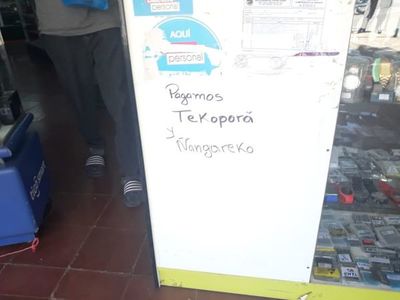 personal
AQUÍ
personal
Pagamos
Tekoporá
y
Ñangareko